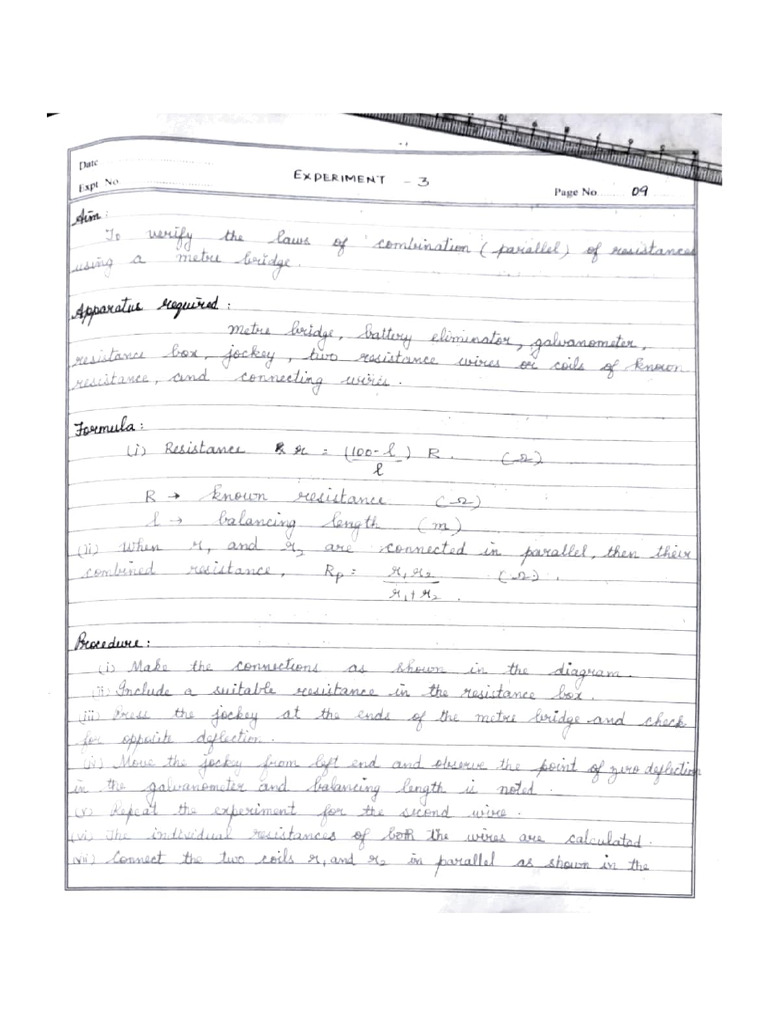 Date
Expt No
EXPERIMENT - 3
Page No 09
Aim:
To verify the laws of combination (parallel) of resistances
using a metre bridge.
Apparatus required:
metre bridge, battery eliminator, galvanometer,
resistance box, jockey, two resistance wires or coils of known
resistance, and connecting wires.
Formula:
(i) Resistance r = (100-l) R. (Ω)
l
R → known resistance (Ω)
l → balancing length (m)
(ii) When r₁ and r₂ are connected in parallel, then their
combined resistance, Rp = r₁r₂ (Ω).
r₁+r₂.
Procedure:
(i) Make the connections as shown in the diagram.
(ii) Include a suitable resistance in the resistance box.
(iii) Press the jockey at the ends of the metre bridge and check
for opposite deflection.
(iv) Move the jockey from left end and observe the point of zero deflection
in the galvanometer and balancing length is noted.
(v) Repeat the experiment for the second wire.
(vi) The individual resistances of both the wires are calculated.
(vii) Connect the two coils r₁ and r₂ in parallel as shown in the